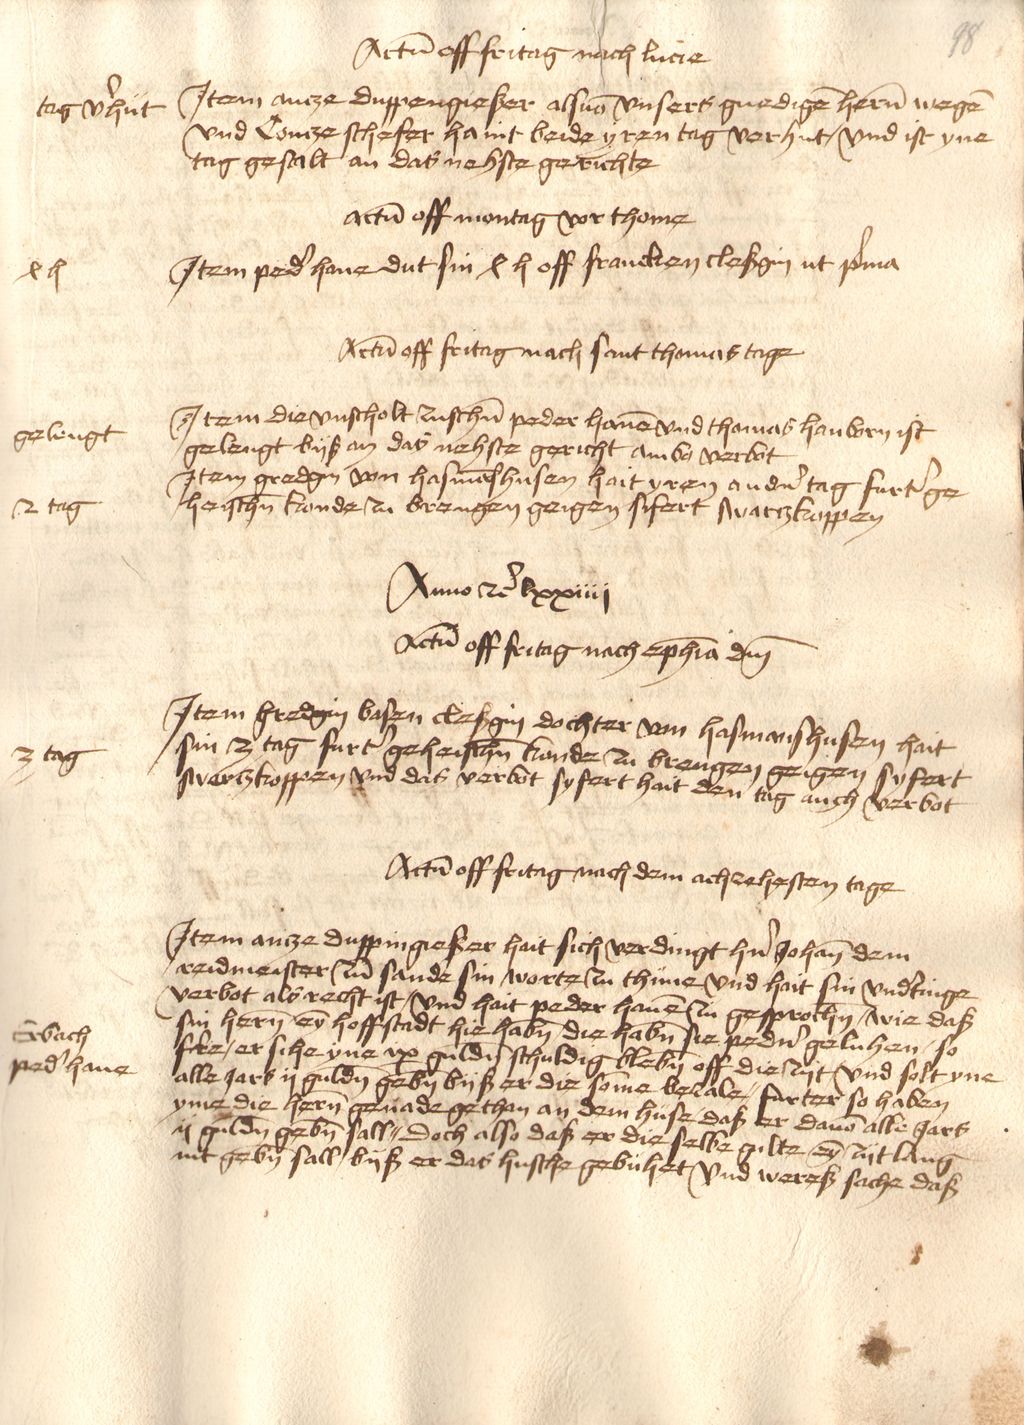 98
Actu͂ off fritag nach lucie
tag v'hut
Item ancze duppengießer alsuo͂ vnsers gnedige͂ hern͂ wege͂
vnd Concze scheffer haint beide yren tag verhut / vnd ist yne
tag gesalt an das nehste gerichte
Actu͂ off montag vor thome
Item ped' hane dut sin h off francken cleßgin ut p'ma
Actu͂ off fritag nach sant thomas tage
gelengt
Item die vnscholt zusche͂n peder hane͂ vnd thomas hanborn ist
gelengt biß an das nehste gericht ambo verbot
2 tag
Item gredgin von hasma͂shusen hait yren andn' tag furt' ge
heisch͂n konde zu brengen geigen sifert swarczkoppen
Anno lxxiiij
Actu͂ off fritag nach eph͂ia dn͂i
3 tag
Item gredgin basen cleßgin dochter von hasmanshusen hait
sin 3 tag furt' geheisch͂n konde zu brengen geigen syfert
swarczkoppen vnd das verbot syfert hait den tag auch verbot
Actu͂ off fritag nach dem achzehesten tage
Erbach
ped' hane
Item ancze duppingießer hait sich verdingt hn' Johan͂ dem
rendmeister zu͂ sande sin worte zu thune vnd hait sin vnd'tinge
verbot als recht ist / vnd hait peder hane͂ zu gesproch͂n / wie daß
sin hern͂ ey͂ hoffstadt hie hab͂n die hab͂n sie pedn' geluhen / so
sihe / er sihe yne xx guld͂n schuldig bleb͂n off die zijt vnd solt yne
alle Jars ij guld͂n geb͂n biß er die som͂e bezale / furter so haben
yme die hern͂ genade gethan an dem huse daß er dauo͂ alle Jars
ij guld͂n geb͂n sall / doch also daß er die selbe gulte ey͂ zijt lang
nit geb͂n sall / biß er das husche gebuhet / vnd wereß sache daß